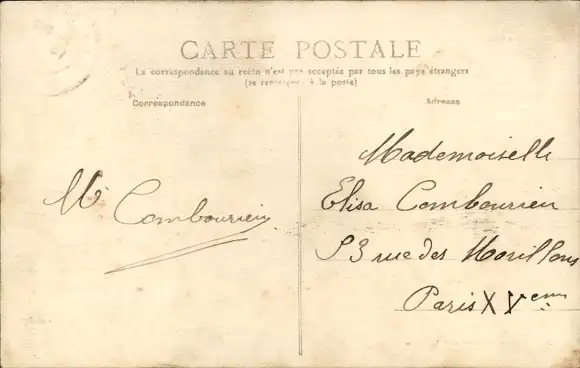 CARTE POSTALE
La correspondance au recto n'est pas acceptée par tous les pays étrangers
(se renseigner à la poste)
Correspondance
Adresse
Mademoiselle
Elisa Combourieu
53 rue des Morillons
Paris XVème
Mr Combourieu